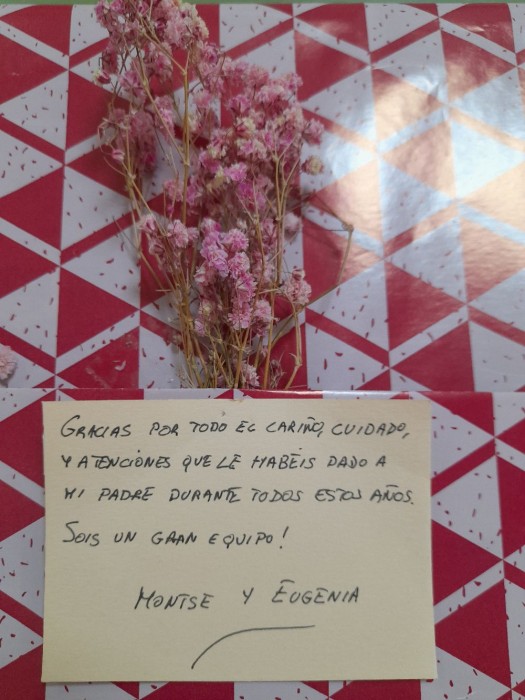 GRACIAS POR TODO EL CARIÑO, CUIDADO,
Y ATENCIONES QUE LE HABÉIS DADO A
MI PADRE DURANTE TODOS ESTOS AÑOS.
SOIS UN GRAN EQUIPO!
MONTSE Y EUGENIA